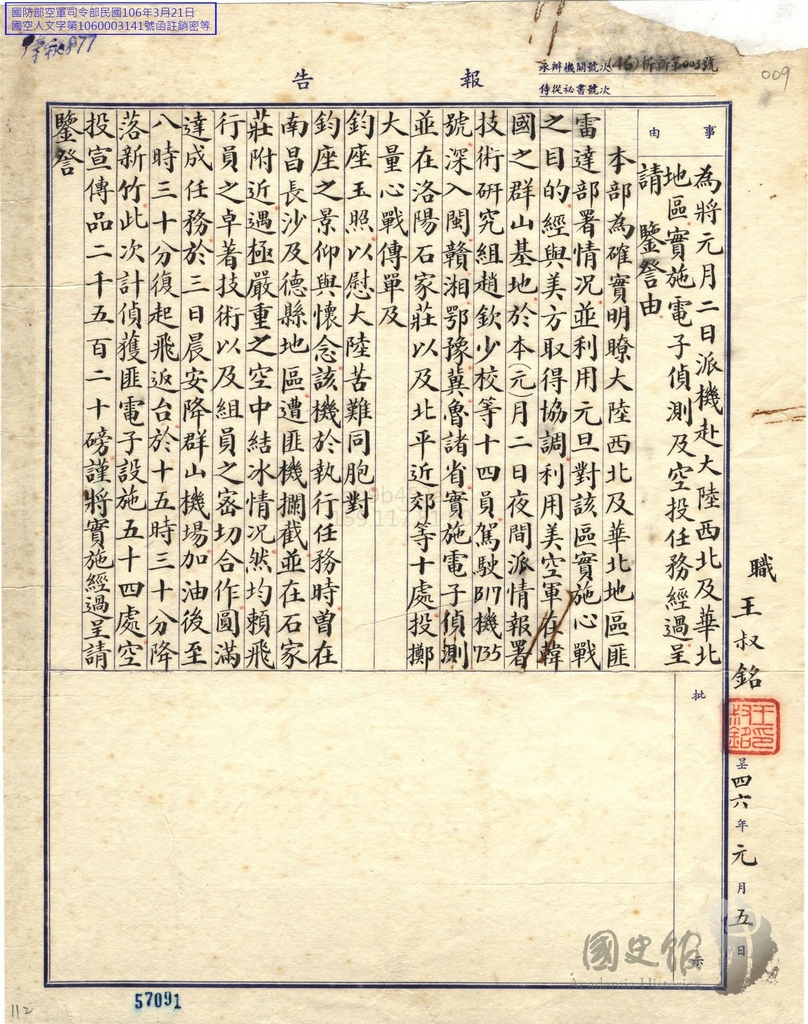 國防部空軍司令部民國106年3月21日
國空人文字第1060003141號函註銷密等
877
009
承辦機關號次(46)析新第003號
侍從祕書號次
報告
事由
為將元月二日派機赴大陸西北及華北
地區實施電子偵測及空投任務經過呈
請 鑒詧由
本部為確實明瞭大陸西北及華北地區匪
雷達部署情況並利用元旦對該區實施心戰
之目的經與美方取得協調利用美空軍在韓
國之群山基地於本(元)月二日夜間派情報署
技術研究組趙欽少校等十四員駕駛B17機735
號深入閩贛湘鄂豫冀魯諸省實施電子偵測
並在洛陽石家莊以及北平近郊等十處投擲
大量心戰傳單及
鈞座玉照以慰大陸苦難同胞對
鈞座之景仰與懷念該機於執行任務時曾在
南昌長沙及德縣地區遭匪機攔截並在石家
莊附近遇極嚴重之空中結冰情況然均賴飛
行員之卓著技術以及組員之密切合作圓滿
達成任務於三日晨安降群山機場加油後至
八時三十分復起飛返台於十五時三十分降
落新竹此次計偵獲匪電子設施五十四處空
投宣傳品二千五百二十磅謹將實施經過呈請
鑒詧
職 王叔銘
王叔銘印
呈四六年元月五日
批示
國史館
Academia Historica
57091
112